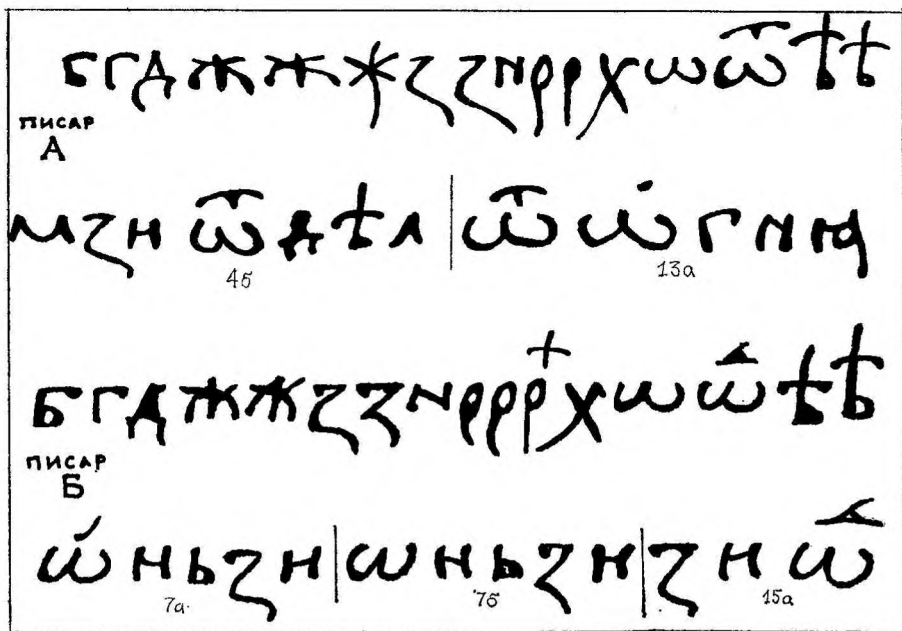 б г д ж ж ж з з н р р х ѡ ѿ ѣ ѣ
писар
А
м з н ѿ д ѣ л | ѿ ѡ г н ю
4б 13а
б г д ж ж з з н р р р х ѡ ѿ ѣ ѣ
писар
Б
ѡ н ь з н | ѡ н ь з н | з н ѿ
7а 7б 15а